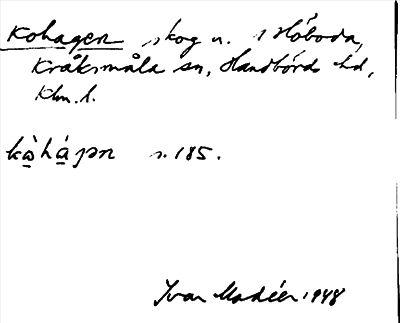 Kohagen skog u. s Höboda,
Kråksmåla sn, Handbörds hd,
Klm. l.
kòhágən s. 185.
Ivar Modéer 1948